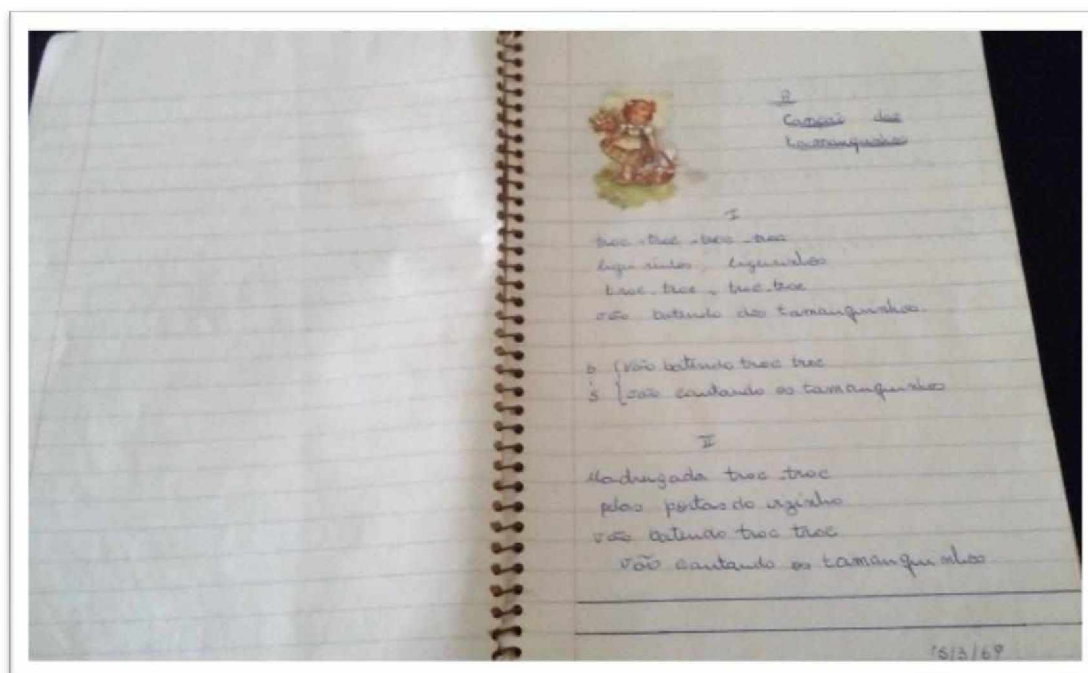 8
Canção dos
tamanquinhos
I
troc-troc-troc-troc
ligeirinhos, ligeirinhos
troc-troc-troc-troc
vão batendo dos tamanquinhos.
b { vão batendo troc troc
is { vão cantando os tamanquinhos
II
Madrugada troc-troc
pelas portas do vizinho
vão batendo troc troc
vão cantando os tamanquinhos
15/3/69